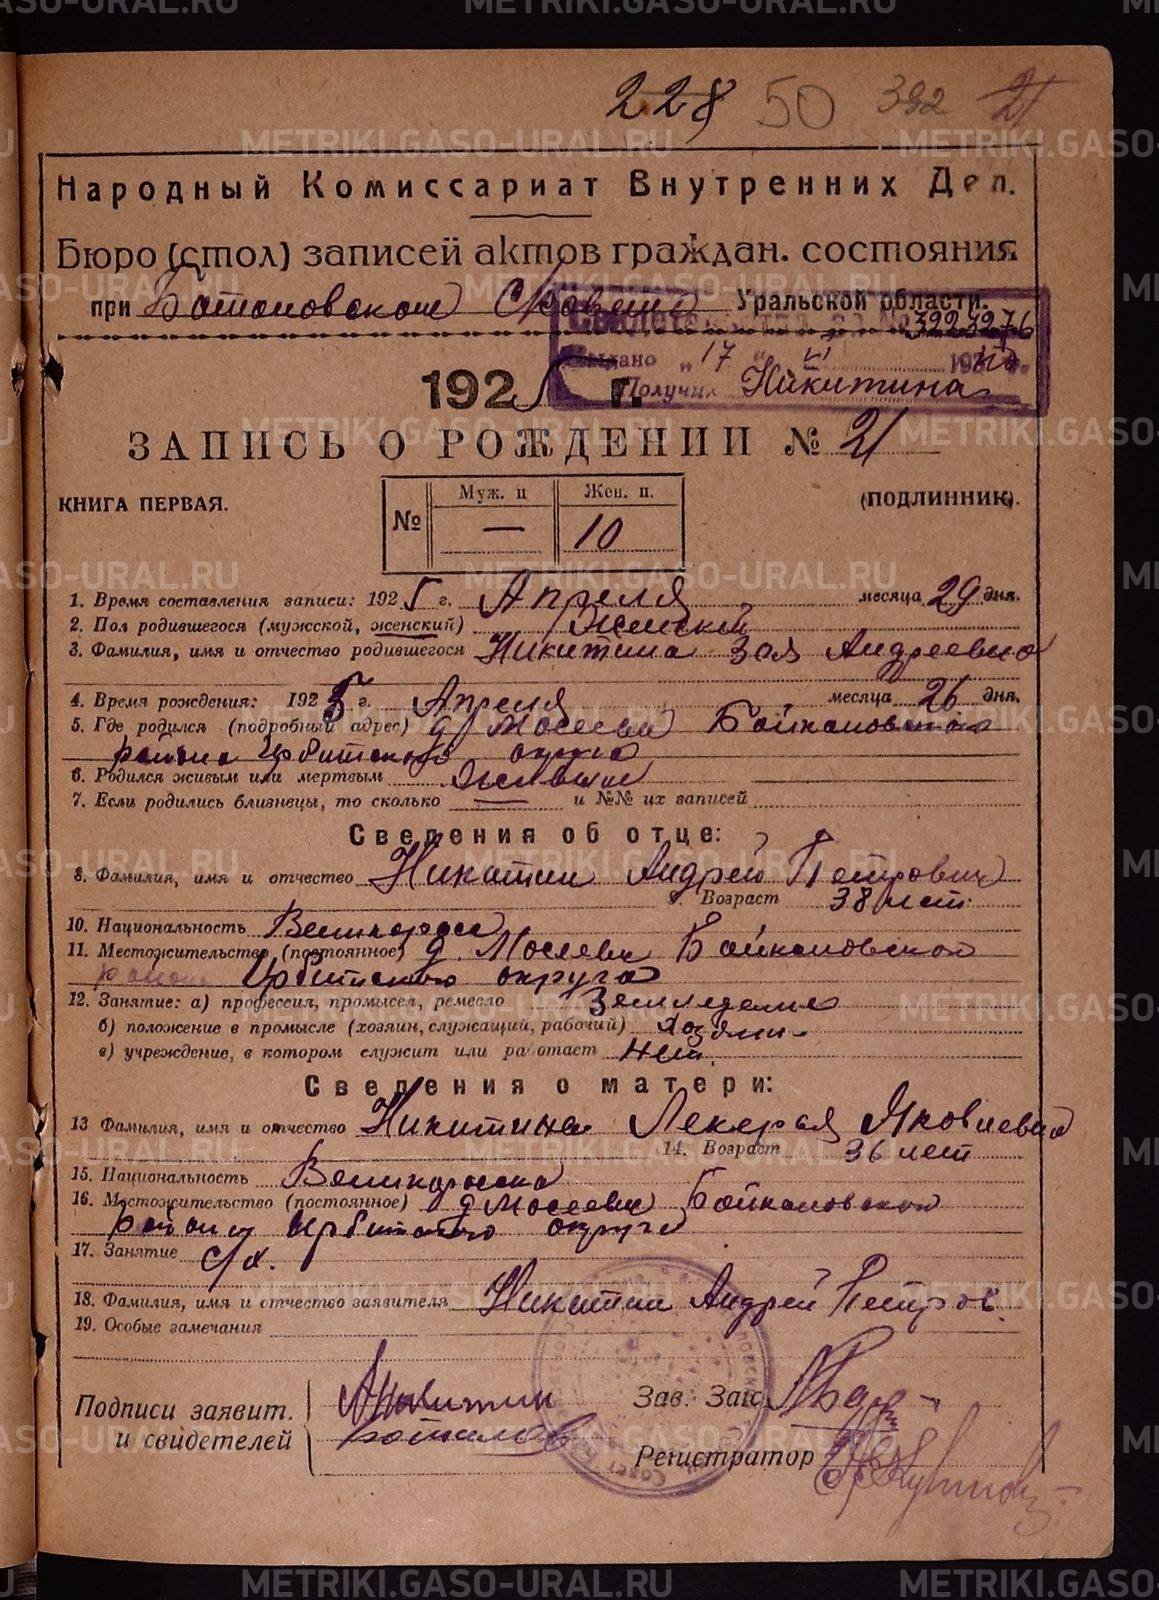 228 50 382 21
Народный Комиссариат Внутренних Дел.
Бюро (стол) записей актов граждан. состояния
при Уральской области.
3223276
Выдано „17 “ VI
Получил Никитина
1925 г.
ЗАПИСЬ О РОЖДЕНИИ № 21
КНИГА ПЕРВАЯ. (ПОДЛИННИК).
Муж. п Жен. п.
№ — 10
1. Время составления записи: 1925 г. Апреля месяца 29 дня.
2. Пол родившегося (мужской, женский) Женский
3. Фамилия, имя и отчество родившегося Никитина Зоя Андреевна
4. Время рождения: 1925 г. Апреля месяца 26 дня.
5. Где родился (подробный адрес) д. Мосеева Байкаловского
района Ирбитского округа
6. Родился живым или мертвым Живым
7. Если родились близнецы, то сколько — и №№ их записей
Сведения об отце:
8. Фамилия, имя и отчество Никитин Андрей Петрович
9. Возраст 38 лет
10. Национальность Великоросс
11. Местожительство (постоянное) д. Мосеева Байкаловской
район Ирбитского округа
12. Занятие: а) профессия, промысел, ремесло Земледелие
б) положение в промысле (хозяин, служащий, рабочий) хозяин
в) учреждение, в котором служит или работает Нет.
Сведения о матери:
13 Фамилия, имя и отчество Никитина Лекерья Яковлевна
14. Возраст 36 лет
15. Национальность Великоросска
16. Местожительство (постоянное) д Мосеева Байкаловской
района Ирбитского округа
17. Занятие с/х.
18. Фамилия, имя и отчество заявителя Никитин Андрей Петров.
19. Особые замечания
Подписи заявит. А Никитин Зав. Загс
и свидетелей Регистратор
METRIKI.GASO-URAL.RU